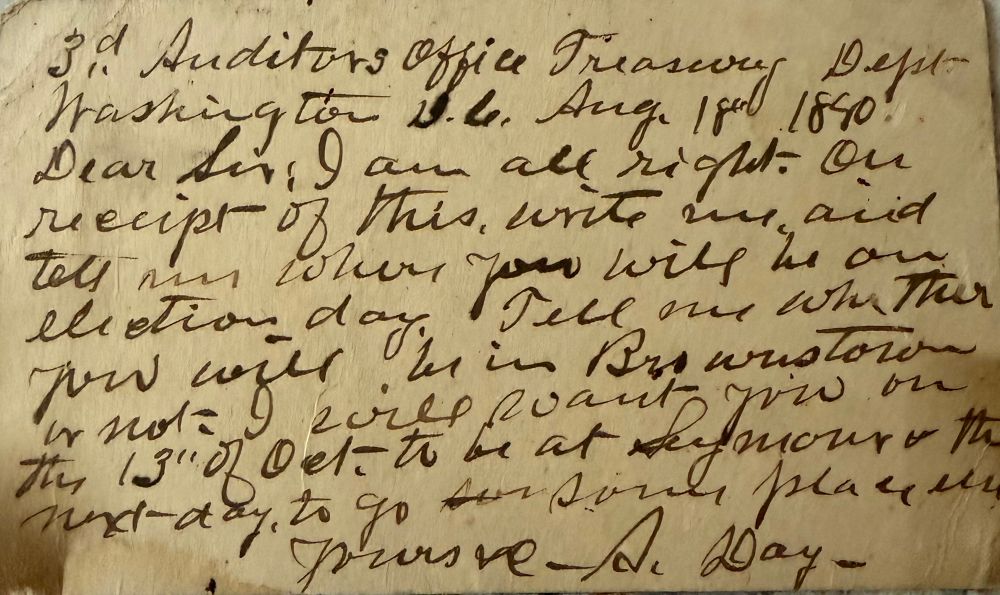 3.d Auditors Office Treasury Dept
Washington D.C. Aug. 18th 1880
Dear Sir; I am all right. On
receipt of this, write me, and
tell me where you will be on
election day. Tell me whether
you will be in Brownstown
or not. I will want you on
the 13" of Oct. to be at Seymour & the
next day, to go some place else
Yours &c – A. Day –